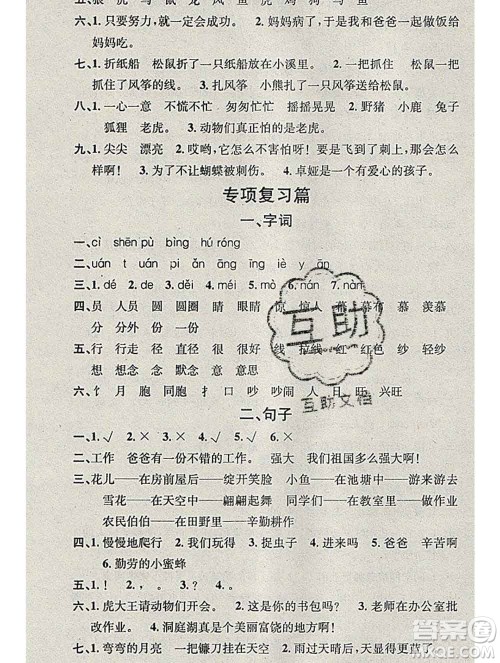 六、1. 只要努力,就一定会成功。 2. 妈妈病了,爸爸和我一起做饭给
妈妈吃。
七、1. 折纸船 松鼠折了一只纸船放在小溪里。 2. 一把抓住 松鼠一把
抓住了风筝的线。 3. 扎风筝 小熊扎了一只风筝送给松鼠。
八、1. 一心一意 不慌不忙 匆匆忙忙 摇摇晃晃 2. 野猪 小鹿 兔子
狐狸 老虎。 3. 动物们真正怕的是老虎。
九、1. 尖尖 漂亮 2. 哎哟,它会不会受伤呢!要是飞到了刺上,那会怎么
样啊! 3. 为了不让蝴蝶被刺伤。 4. 卓娅是一个有爱心的孩子。
专项复习篇
一、字词
一、cì shēn pù bìng hú róng
二、uán t uán pi ǎn ǎng īng iè y ān
三、1. dé 2. de 3. děi 4. méi 5. mò 6. nán 7. nàn
四、员 人员 圆 圆圈 睛 眼睛 惊 惊人 幕 幕布 慕 羡慕
份 分外 份 一份
五、行 行走 径 直径 很 很好 线 拉线 红 红色 纱 轻纱
想 想念 念 默念 意 意思
六、忄 月 胞 同胞 扌 口 吵 吵闹 日 旺 兴旺
二、句子
一、1. √ 2. × 3. × 4. √ 5. √ 6. ×
二、工作 爸爸有一份不错的工作。 强大 我们祖国多么强大啊!
三、花儿——在房前屋后——绽开笑脸 小鱼——在池塘中——游来游去
雪花——在天空中——翩翩起舞 同学们——在教室里——做作业
农民伯伯——在田野里——辛勤耕作
四、1. 慢慢地爬行 2. 我们玩得 3. 捉虫子 4. 渐渐地 5. 爸爸 辛苦苦
6. 勤劳的小蜜蜂
五、1. ! 2. , 。 3. ? 4. 。
六、1. 虎大王请动物们开会。 2. 这是你的书包吗? 3. 老师在办公室批
改作业。 4. 洞庭湖真是个美丽富饶的地方啊!
七、1. 弯弯的月亮 一把镰刀挂在天空 2. 雨过天晴后,天空更蓝了
互助
互助文档
答案圈
MXQE.COM